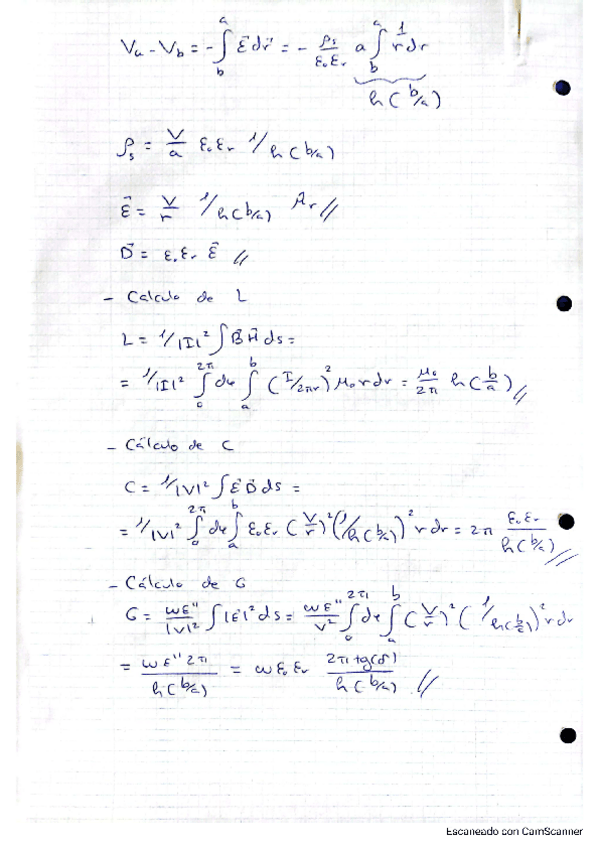 Va - Vb = - ∫_b^a E⃗ dr⃗ = - ρs/ε₀εr a ∫_b^a 1/r dr
ln(b/a)
ρs = V/a ε₀εr 1/ln(b/a)
E⃗ = V/r 1/ln(b/a) μ̂r //
D⃗ = ε₀εr E⃗ //
- Calculo de L
L = 1/|I|² ∫ B⃗ H⃗ ds =
= 1/|I|² ∫_0^2π dφ ∫_a^b (I/2πr)² μ₀ r dr = μ₀/2π ln(b/a) //
- Cálculo de C
C = 1/|V|² ∫ E⃗ D⃗ ds =
= 1/|V|² ∫_0^2π dφ ∫_a^b ε₀εr (V/r)² (1/ln(b/a))² r dr = 2π ε₀εr/ln(b/a) //
- Cálculo de G
G = ωε''/|V|² ∫ |E|² ds = ωε''/V² ∫_0^2π dφ ∫_a^b (V/r)² (1/ln(b/a))² r dr
= ωε'' 2π/ln(b/a) = ωε₀εr 2π tg(δ)/ln(b/a) //
Escaneado con CamScanner